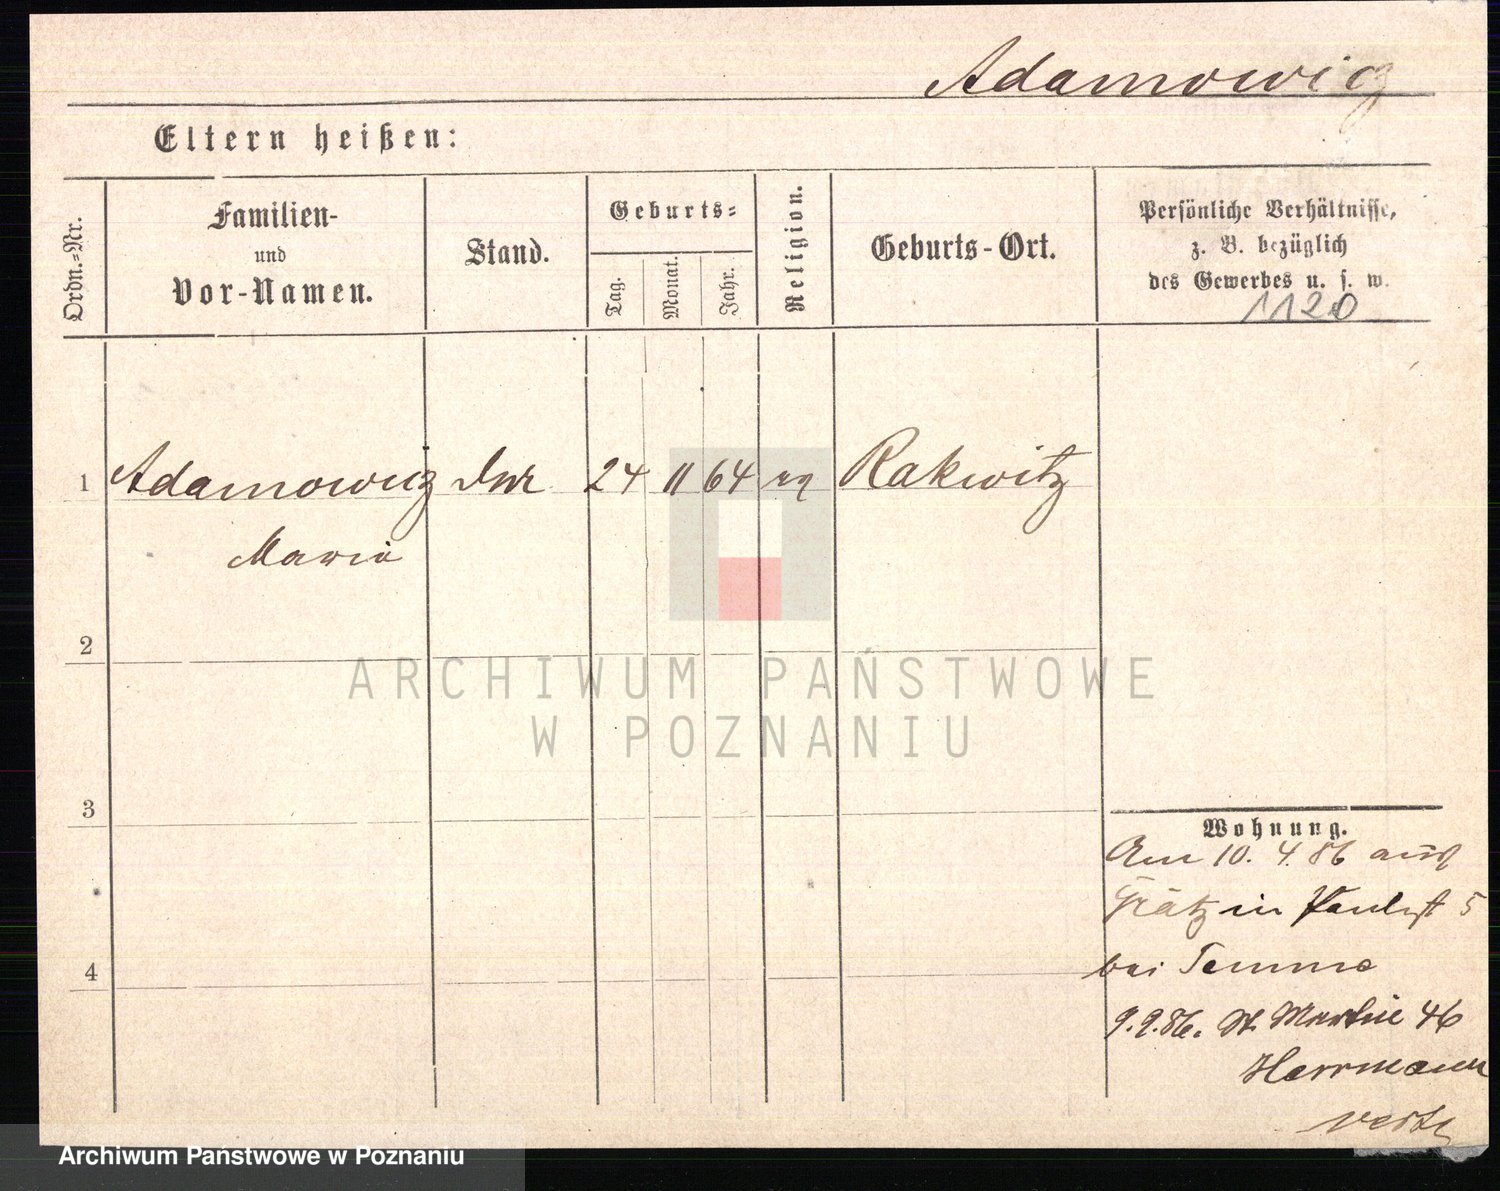 Adamowicz
Eltern heißen:
Ordn.=Nr.
Familien-
und
Vor-Namen.
Stand.
Geburts=
Tag.
Monat.
Jahr.
Religion.
Geburts-Ort.
Persönliche Verhältnisse,
z. B. bezüglich
des Gewerbes u. s. w.
1120
1 Adamowicz 24 11 64 Rakwitz
Maria
2
3
4
Wohnung.
Am 10.4.86 aus
Grätz in Paulist 5
bei Temme
9.9.86. St. Martin 46
Herrmann
ARCHIWUM PAŃSTWOWE
W POZNANIU
Archiwum Państwowe w Poznaniu